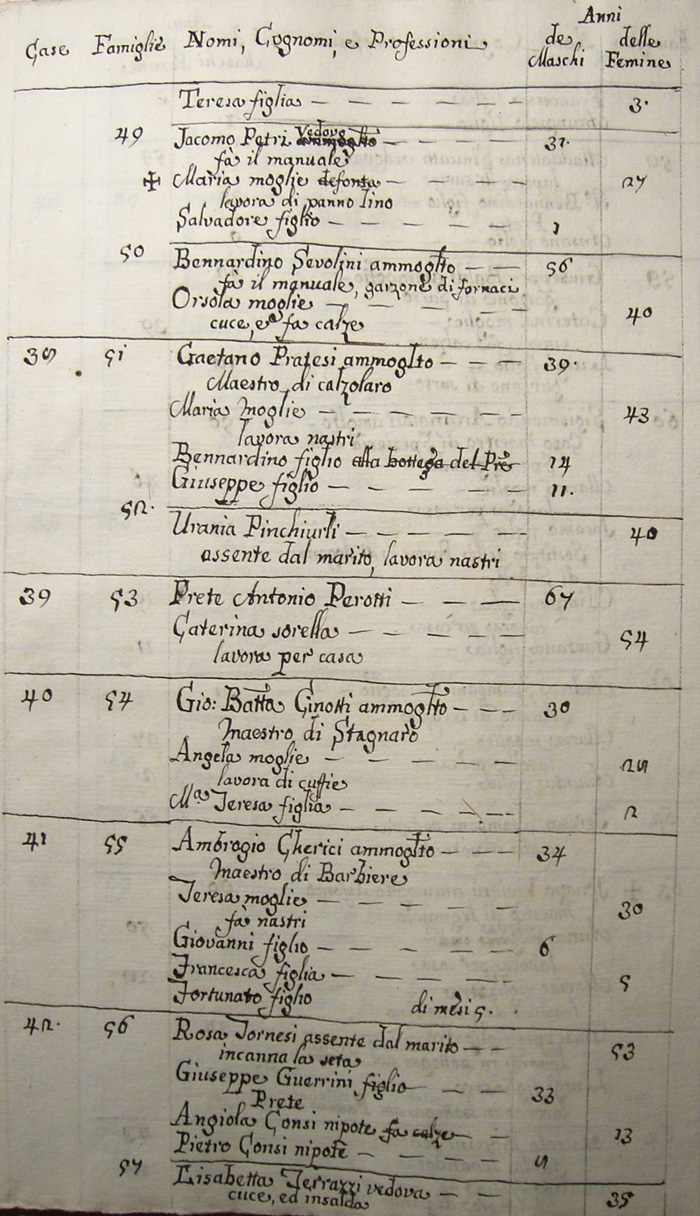 Anni
Case Famiglie Nomi, Cognomi, e Professioni de Maschi delle Femine
Teresa figlia — — — — — — 3.
49 Jacomo Petri Vedovo ammoglto — — — 31.
fà il manuale
✠ Maria moglie defonta — — — 27
lavora di panno lino
Salvadore figlio — — — — — 1
50 Bennardino Sevolini ammoglto — — 56
fà il manuale, garzone di fornaci
Orsola moglie — — — — — 40
cuce, e fa calze
38 51 Gaetano Pratesi ammoglto — — — 39.
Maestro di calzolaro
Maria moglie — — — — — — 43
lavora nastri
Bennardino figlio alla bottega del Pre 14
Giuseppe figlio — — — — — 11.
52. Urania Pinchiurli — — — — — 40
assente dal marito, lavora nastri
39 53 Prete Antonio Perotti — — — 67
Caterina sorella — — — — — 54
lavora per casa
40 54 Gio: Batta Cinotti ammoglto — — — 30
Maestro di Stagnaro
Angela moglie — — — — — 28
lavora di cuffie
Ma Teresa figlia — — — — — 2
41 55 Ambrogio Cherici ammoglto — — — 34
Maestro di Barbiere
Teresa moglie — — — — — 30
fà nastri
Giovanni figlio — — — — — 6
Francesca figlia — — — — — 5
Fortunato figlio di mesi 5.
42. 56 Rosa Tornesi assente dal marito — — 53
incanna la seta
Giuseppe Guerrini figlio — — — 33
Prete
Angiola Consi nipote fa calze — — 13
Pietro Consi nipote — — — — 8
57 Lisabetta Terrazzi vedova — — — 38
cuce, ed insalda